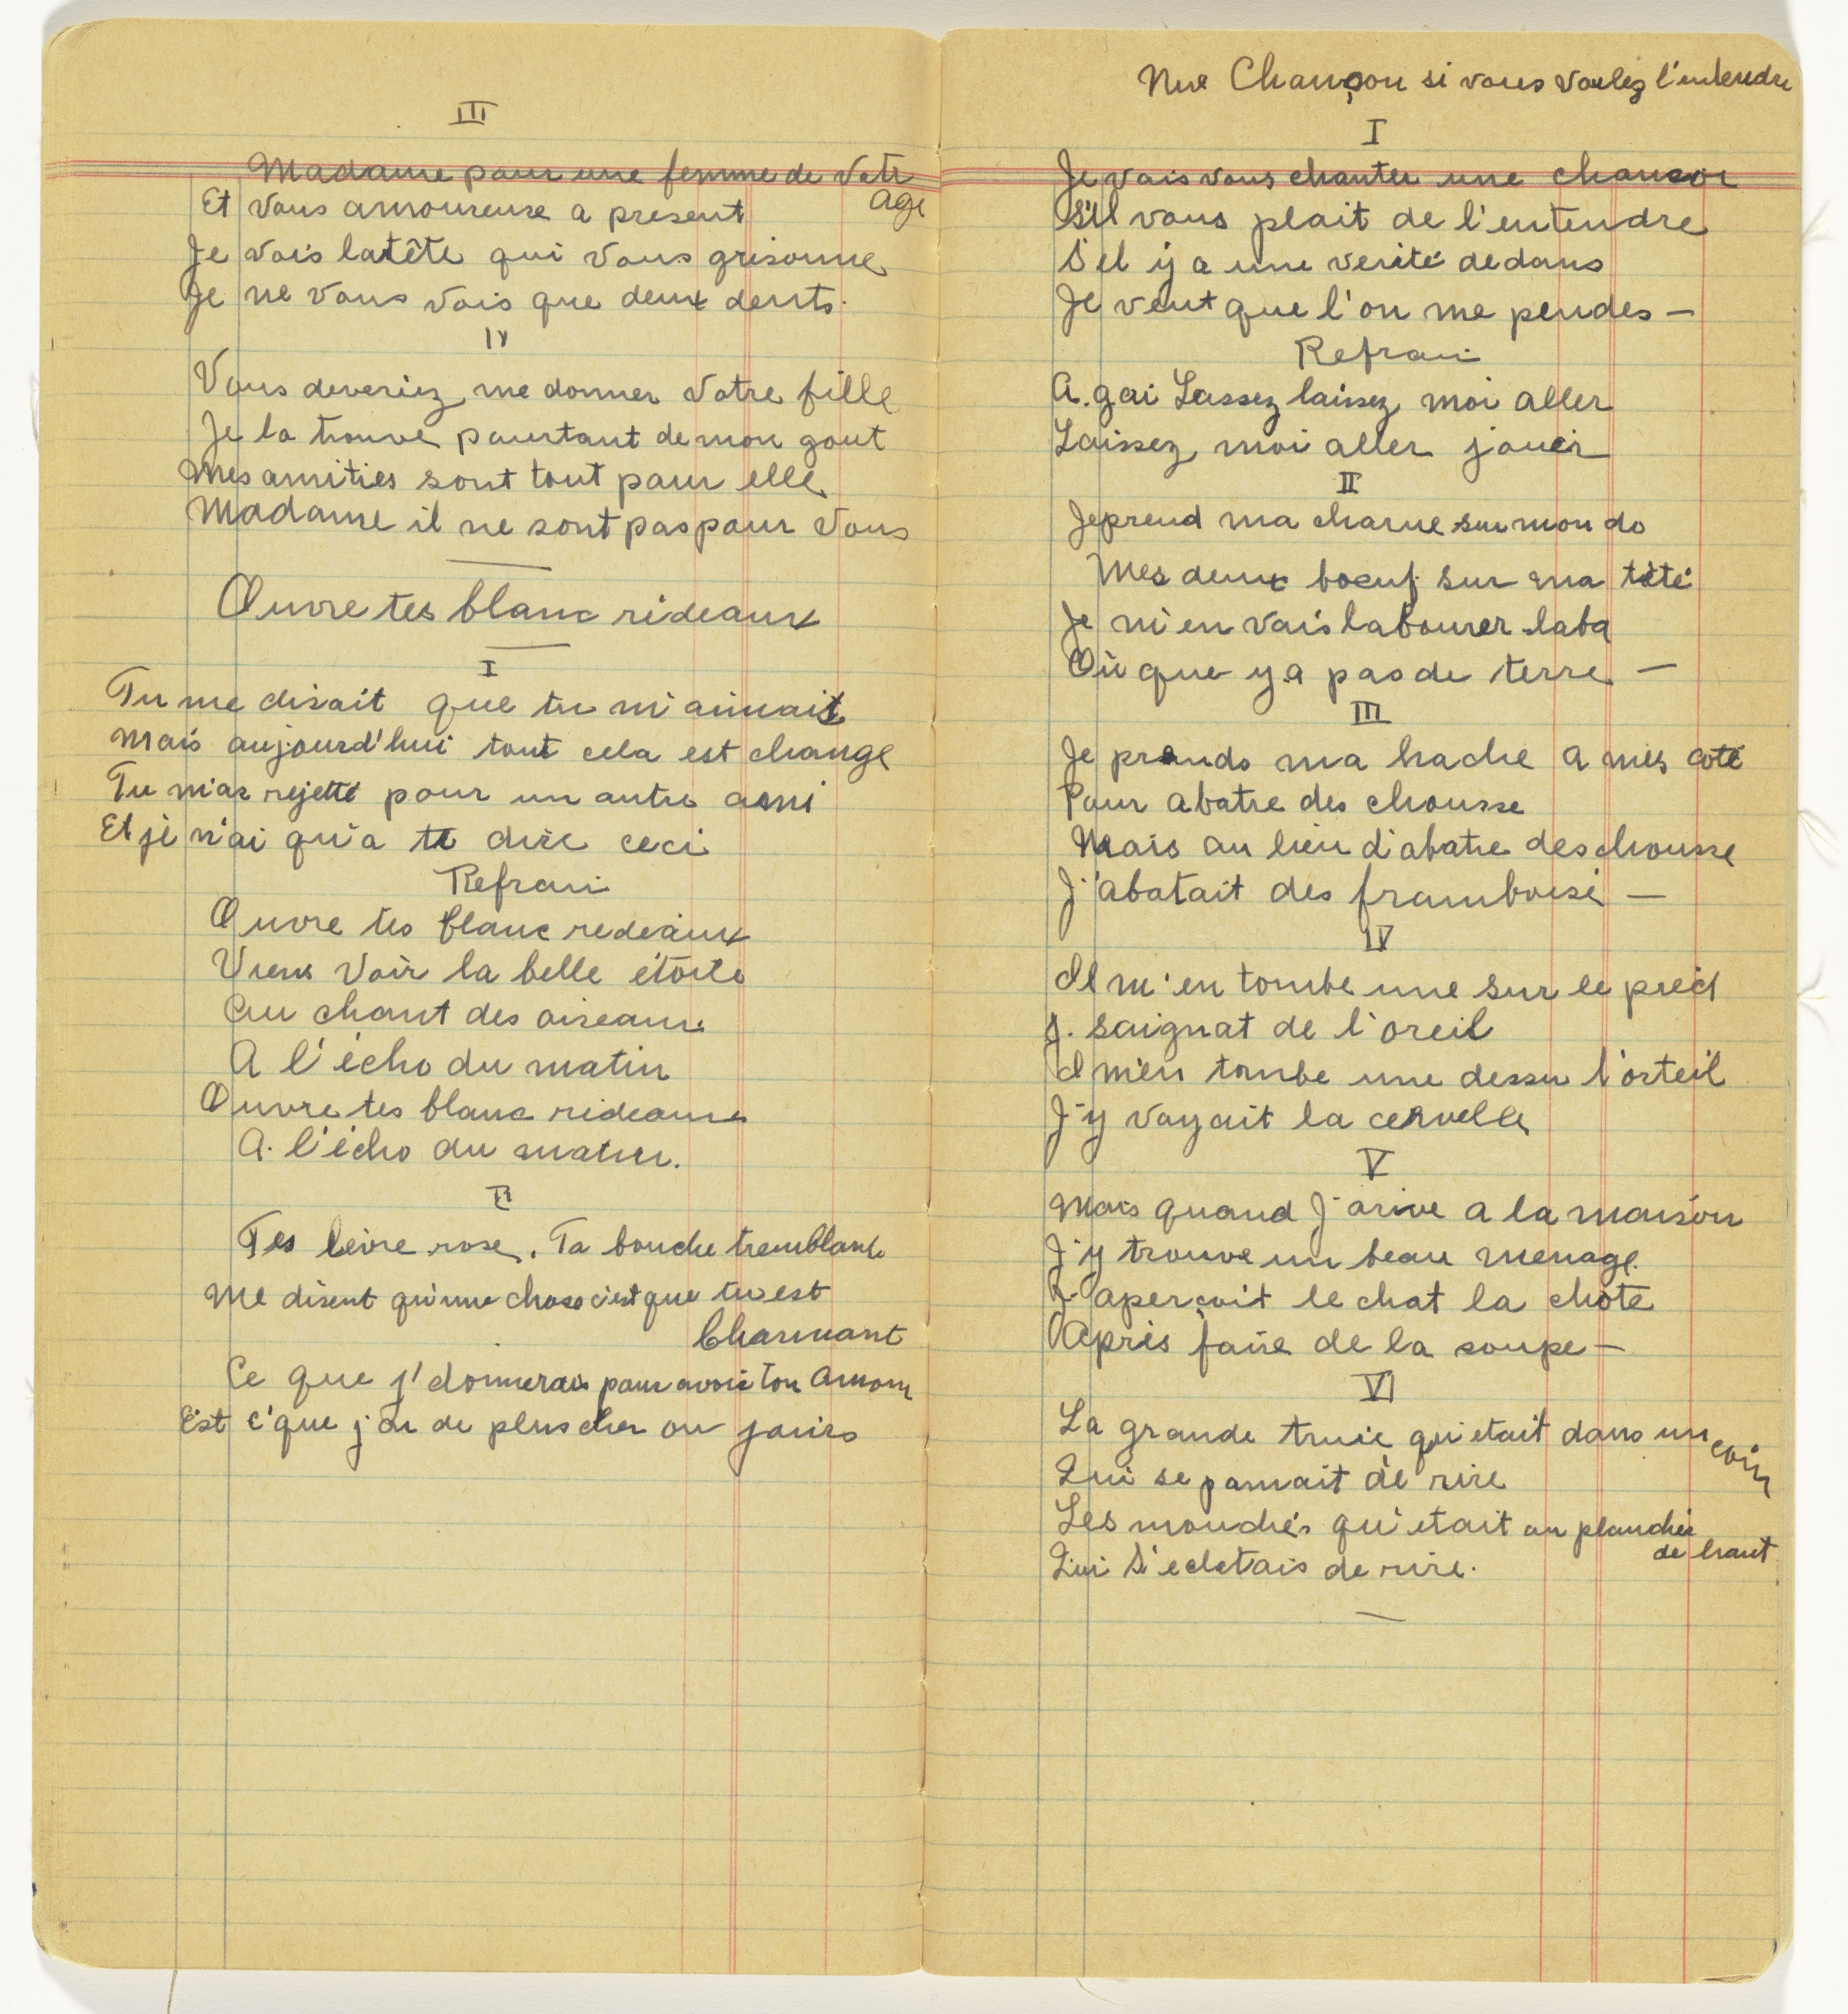 III
Madame pour une femme de votr
age
Et vous amoureuse a present
Je vois la tête qui vous grisonne
Je ne vous vois que deux dents.
IV
Vous deveriez me donner votre fille
Je la trouve pourtant de mon gout
Mes amities sont tout pour elle
Madame il ne sont pas pour vous
Ouvre tes blanc rideaux
I
Tu me disait que tu m'aimait
Mais aujourd'hui tout cela est change
Tu m'as rejetté pour un autre ami
Et je n'ai qu'a te dire ceci
Refrain
Ouvre tes blanc rideaux
Viens voir la belle étoile
Au chant des oiseaux
A l'écho du matin
Ouvre tes blanc rideaux
A. l'écho du matin.
II
Tes levre rose. Ta bouche tremblante
Me disent qu'une chose c'est que tu est
Charmant
Ce que j'donnerais pour avoir ton Amour
Est c'que j'ai de plus cher ou jours
Une Chançon si vous voulez l'entendre
I
Je vais vous chanter une chanson
S'il vous plait de l'entendre
S'il y a une verité dedans
Je veut que l'on me pendes –
Refrain
A. gai Lassez laissez moi aller
Laissez moi aller jouer
II
Je prend ma charue sur mon do
Mes deux boeuf sur ma tété
Je m'en vais labourer laba
Où que y a pas de terre –
III
Je prends ma hache a mes coté
Pour abatre des chousse
Mais au lieu d'abatre des chousse
J'abatait des framboise –
IV
Il m'en tombe une sur le pied
J. saignat de l'oreil
Il m'en tombe une dessu l'orteil
J'y voyait la cervelle
V
Mais quand J'arive a la maison
J'y trouve un beau menage.
J'aperçoit le chat la chôte
Après faire de la soupe –
VI
La grande truie qu'etait dans un coin
Qui se pamait de rire
Les mouches qu'etait au plancher
de haut
Qui s'eclatais de rire.